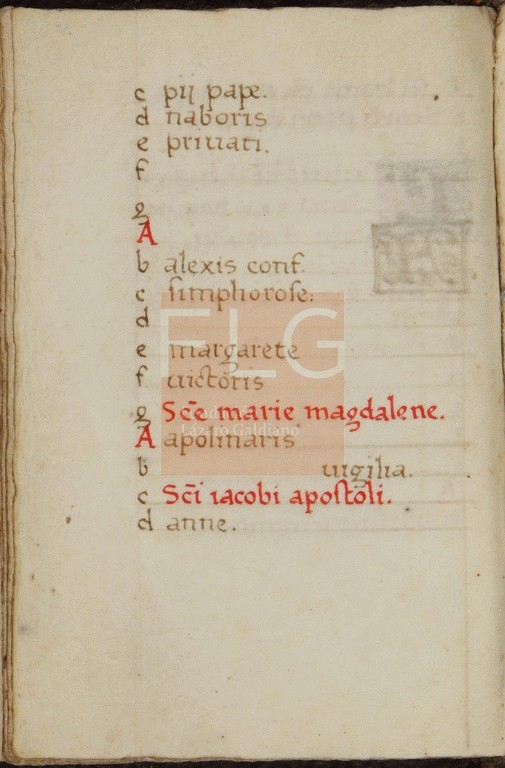 c pij pape.
d naboris
e priuati.
f
g
A
b alexis conf.
c simphorose.
d
e margarete
f uictoris
g Scē marie magdalene.
A apolinaris
b uigilia.
c Scī iacobi apostoli.
d anne.
FLG
Lázaro Galdiano